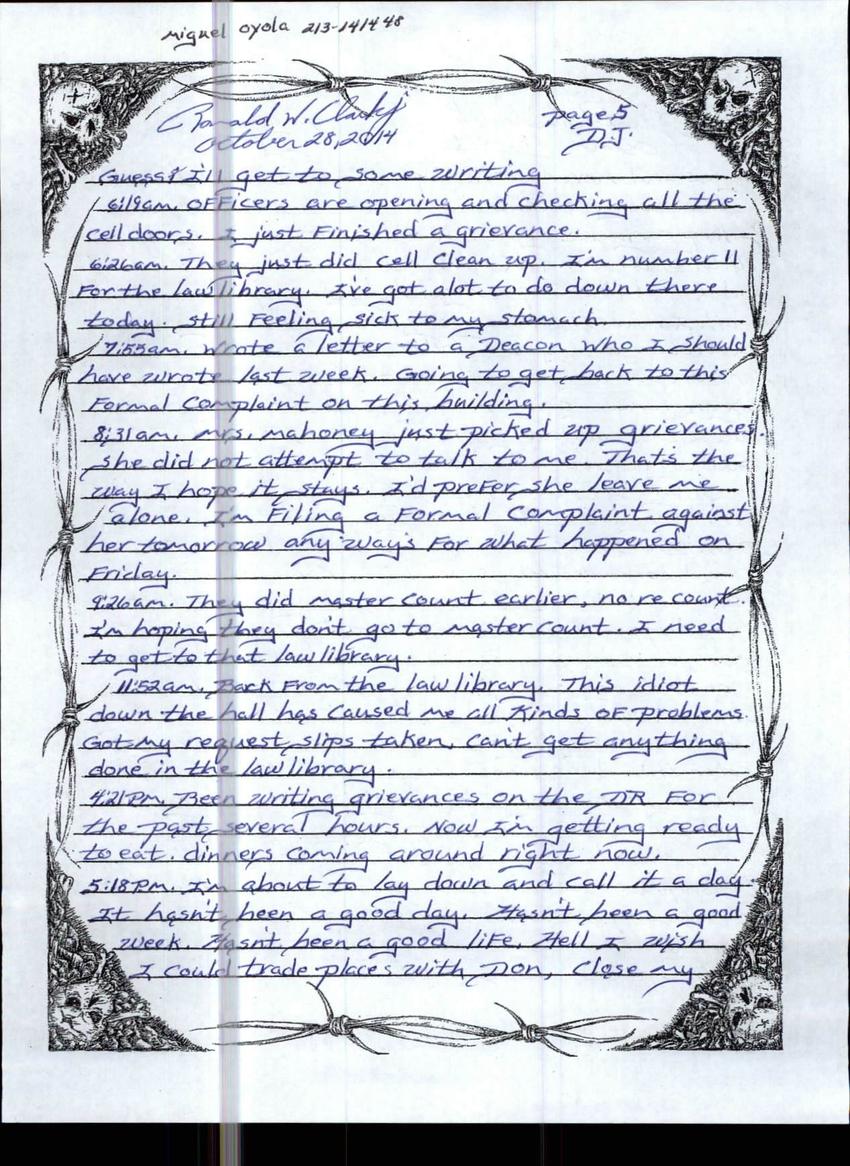 miguel oyola 213-141448
Ronald W. Clark Jr
October 28, 2014
page 5
D.J.
Guess I'll get to some writing
6:19am. Officers are opening and checking all the
cell doors. I just finished a grievance.
6:26am. They just did cell clean up. I'm number 11
for the law library. I've got alot to do down there
today. still feeling sick to my stomach.
7:55am. wrote a letter to a Deacon who I should
have wrote last week. Going to get back to this
formal complaint on this building.
8:31am. mrs. mahoney just picked up grievances.
she did not attempt to talk to me. That's the
way I hope it stays. I'd prefer she leave me
alone. I'm filing a formal complaint against
her tomorrow any ways for what happened on
Friday.
9:26am. They did master count earlier, no re count.
I'm hoping they don't go to master count. I need
to get to that law library.
11:52am. Back from the law library. This idiot
down the hall has caused me all kinds of problems.
Got my request slips taken, can't get anything
done in the law library.
4:21pm. Been writing grievances on the DR for
the past several hours. Now I'm getting ready
to eat. dinners coming around right now.
5:18pm. I'm about to lay down and call it a day.
It hasn't been a good day. Hasn't been a good
week. Hasn't been a good life. Hell I wish
I could trade places with Don, close my